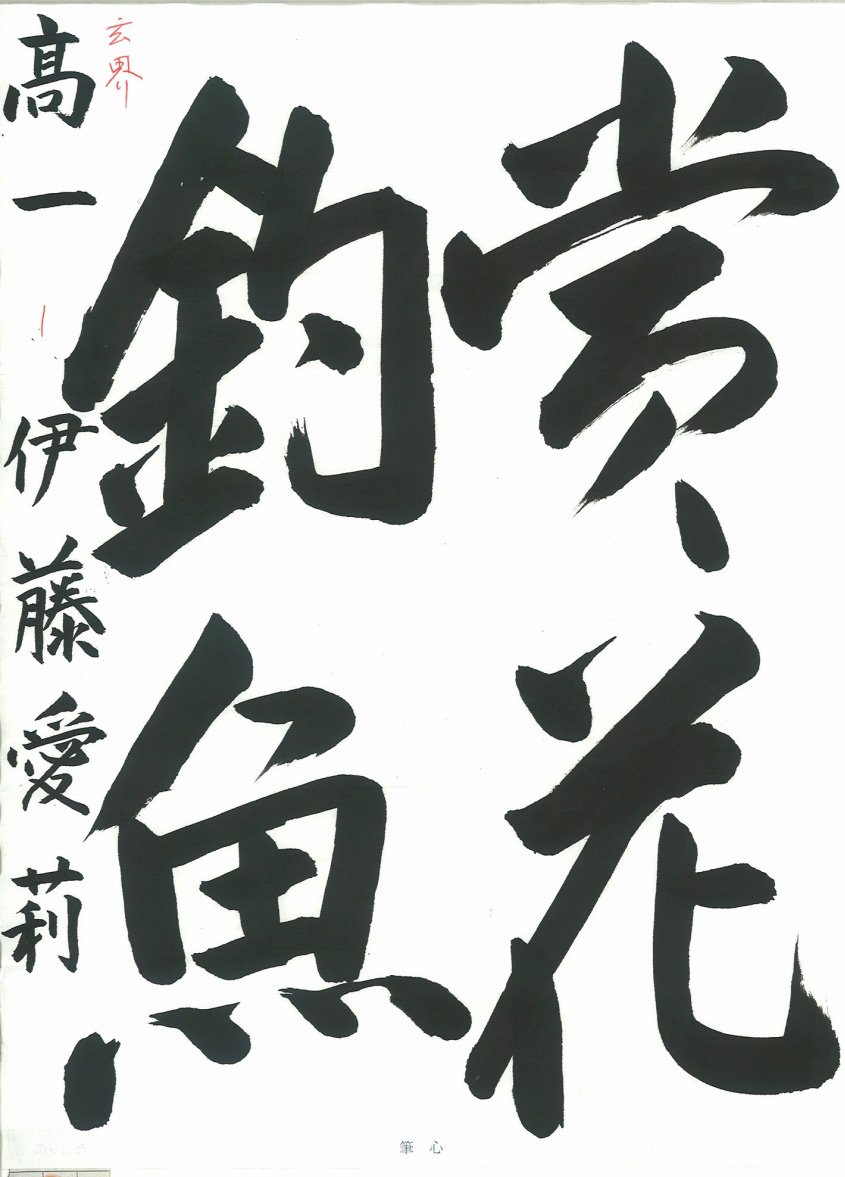 賞花
釣魚
玄界
高一 伊藤愛莉
筆心